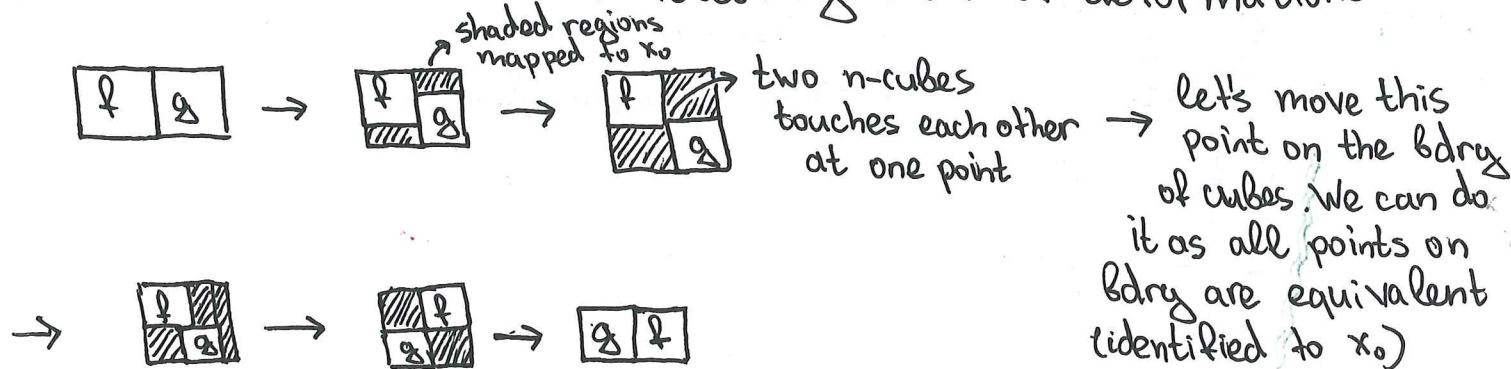 shaded regions
mapped to x₀
f g → f g → f g
two n-cubes
touches each other
at one point
→ let's move this
point on the bdry
of cubes. We can do
it as all points on
bdry are equivalent
(identified to x₀)
→ f g → f g → g f